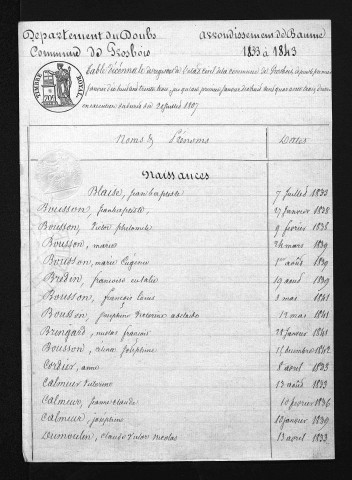 Departement du Doubs arrondissement de Baume
Commune de Grosbois 1833 à 1843
table décennale des registres de l'état civil de la commune de Grosbois depuis premier
janvier dix huit cent trente trois, jusqu'au premier janvier dix huit cent quarante trois, dressée
en exécution du décret du 20 juillet 1807
TIMBRE ROYAL
Noms & Prénoms Dates
Naissances
Blaise, jean baptiste 7 juillet 1833
Bousson, jean baptiste, 27 janvier 1838
Bousson, victor philomele 9 février 1836
Bousson, marie 24 mars 1839
Bousson, marie Eugénie 1er août 1839
Bredin, françoise eulalie 19 aout 1839
Bousson, françois louis 1 mai 1841
Bousson, joséphine victorine adelaide 12 mai 1841
Brengard, nicolas francois 28 janvier 1841
Bousson, joséphine 15 decembre 1842
Cordier, anne 8 avril 1833
Calmeur victorine 13 août 1833
Calmeur, jeanne claude 10 février 1836
Calmeur, joséphine 12 janvier 1839
Dumoulin, claude victor nicolas 13 avril 1833